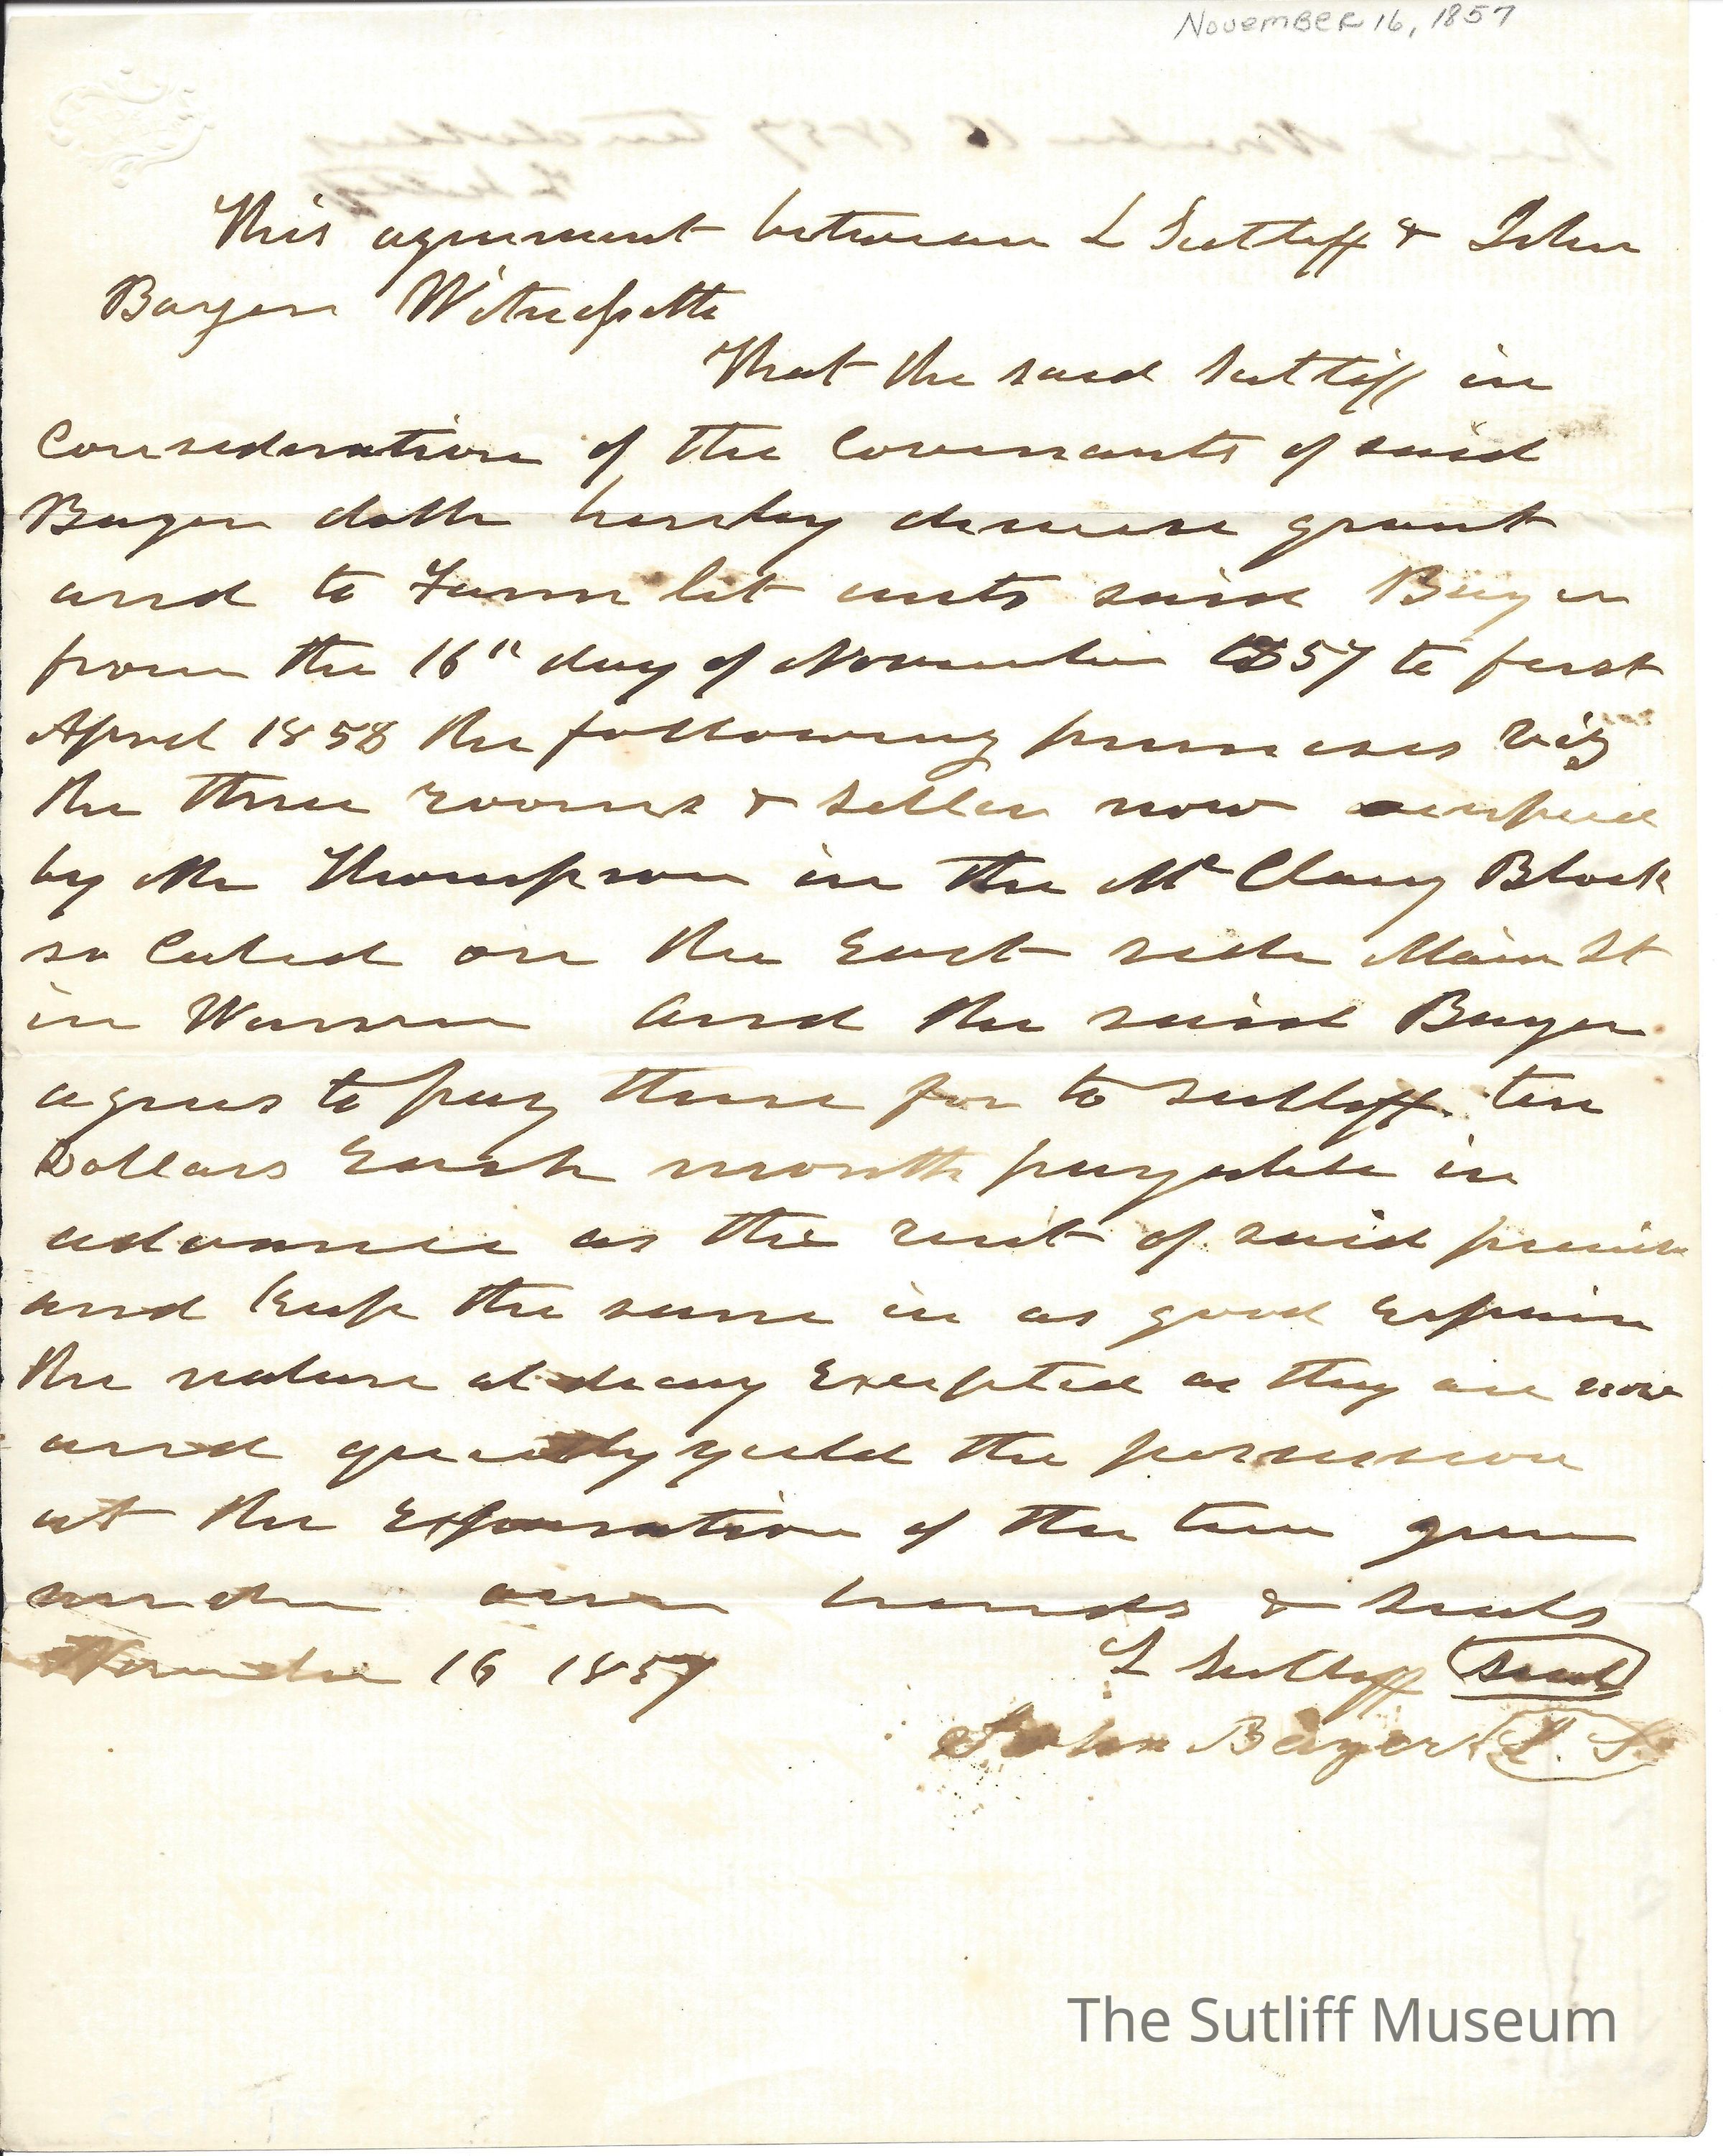 November 16, 1857
This agreement between L Sutliff & John
Bayer Witnesseth
That the said Sutliff in
Consideration of the Covenants of said
Bayer doth hereby demise grant
and to Farm let unto said Bayer
from the 16" day of November 1857 to first
April 1858 the following premises viz
the three rooms & seller now occupied
by Mr Thompson in the Mc Clary Block
so Cated on the East side Main St
in Warren and the said Bayer
agrees to pay there for to Sutliff ten
Dollars Each month payable in
advance as the rent of said premises
and keep the same in as good repair
the nature al decay Excepted as they are now
and quietly yield the possession
at the Expiration of the time given
under our hands & seals
November 16 1857 L Sutliff seal
John Bayer L. S.
The Sutliff Museum